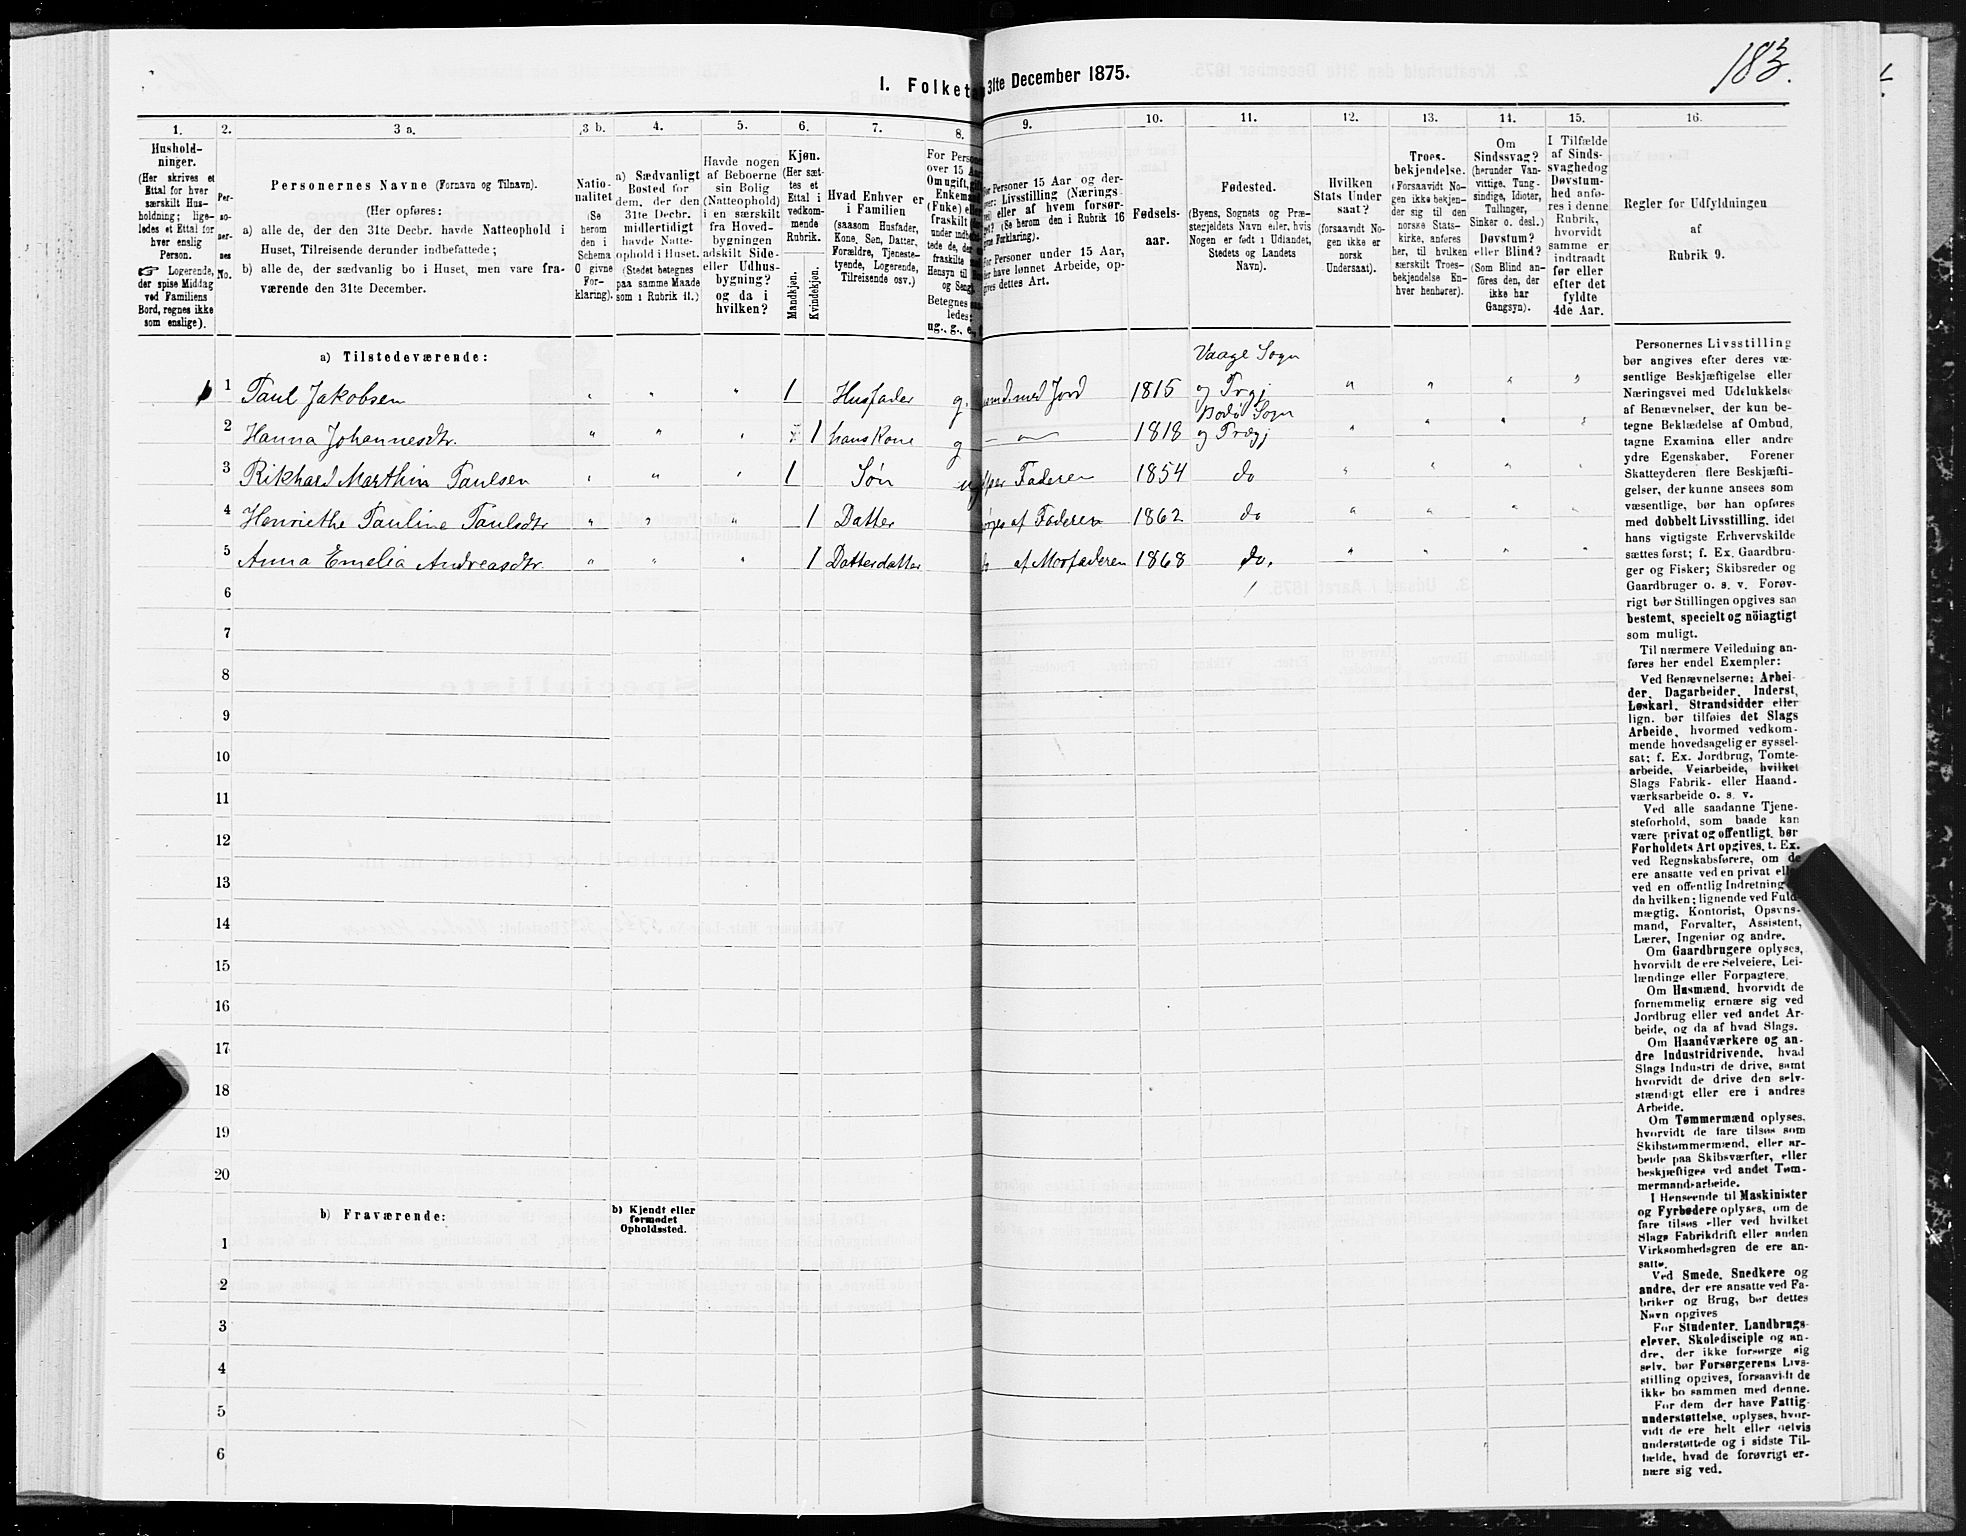 183.
I. Folketæ 31te December 1875.
1. 2. 3 a. 3 b. 4. 5. 6. 7. 8. 9. 10. 11. 12. 13. 14. 15. 16.
Hushold-
ninger.
(Her skrives et
Ettal for hver
særskilt Hus-
holdning; lige-
ledes et Ettal for
hver enslig
Person.
☞ Logerende,
der spise Middag
ved Familiens
Bord, regnes ikke
som enslige).
Per-
so-
ner-
nes
No.
Personernes Navne (Fornavn og Tilnavn).
(Her opføres:
a) alle de, der den 31te Decbr. havde Natteophold i
Huset, Tilreisende derunder indbefattede;
b) alle de, der sædvanlig bo i Huset, men vare fra-
værende den 31te December.
Natio-
nalitet
(Se
herom
den i
Schema
O givne
For-
klaring).
a) Sædvanligt
Bosted for
dem, der den
31te Decbr.
midlertidigt
havde Natte-
ophold i Huset.
(Stedet betegnes
paa samme Maade
som i Rubrik 11.)
Havde nogen
af Beboerne
sin Bolig
(Natteophold)
i en særskilt
fra Hoved-
bygningen
adskilt Side-
eller Udhus-
bygning?
og da i
hvilken?
Kjøn.
(Her sæt-
tes et
Ettal i
vedkom-
mende
Rubrik.
Mandkjøn.
Kvindekjøn.
Hvad Enhver er
i Familien
(saasom Husfader,
Kone, Søn, Datter,
Forældre, Tjeneste-
tyende, Logerende,
Tilreisende osv.)
For Persone
over 15 Aar
Om ugift, gift
Enkemand
(Enke) eller
fraskilt
under indbe
tede de, der
fraskilte
Hensyn til
og Seng
Betegnes saa
ledes:
ug., g., e.,
For Personer 15 Aar og der-
over: Livsstilling (Nærings-
vei) eller af hvem forsør-
get? (Se herom den i Rubrik 16
givne Forklaring).
For Personer under 15 Aar,
der have lønnet Arbeide, op-
gives dettes Art.
Fødsels-
aar.
Fødested.
(Byens, Sognets og Præ-
stegjeldets Navn eller, hvis
Nogen er født i Udlandet,
Stedets og Landets
Navn).
Hvilken
Stats Under
saat?
(forsaavidt No-
gen ikke er
norsk
Undersaat).
Troes-
bekjendelse.
(Forsaavidt No-
gen ikke bekjen-
der sig til den
norske Stats-
kirke, anføres
her, til hvilken
særskilt Troes-
bekjendelse En-
hver henhører).
Om
Sindssvag?
(herunder Van-
vittige, Tung-
sindige, Idioter,
Tullinger,
Sinker o. desl.)
Døvstum?
eller Blind?
(Som Blind an-
føres den, der
ikke har
Gangsyn).
I Tilfælde
af Sinds-
svaghed og
Døvstum-
hed anfø-
res i denne
Rubrik,
hvorvidt
samme er
indtraadt
før eller
efter det
fyldte
4de Aar.
Regler for Udfyldningen
af
Rubrik 9.
a) Tilstedeværende:
Vaage Sogn
1 Paul Jakobsen " " " 1 Husfader g. med Jord 1815 og Prgj " " " "
Bodø Sogn
2 Hanna Johannesdtr. " " " 1 hans Kone g 1818 og Prægj " " " "
3 Rikhard Marthin Paulsen " " " 1 Søn ug Faderen 1854 do " " " "
4 Henriethe Pauline Paulsdtr " " " 1 Datter af Faderen 1862 do " " " "
5 Anna Emelia Andreasdtr. " " " 1 Datterdatter af Morfaderen 1868 do. " " " "
6
7
8
9
10
11
12
13
14
15
16
17
18
19
20
b) Fraværende:
b) Kjendt eller
formodet
Opholdssted.
1
2
3
4
5
6
Personernes Livsstilling
bør angives efter deres væ-
sentlige Beskjæftigelse eller
Næringsvei med Udelukkelse
af Benævnelser, der kun be-
tegne Beklædelse af Ombud,
tagne Examina eller andre
ydre Egenskaber. Forener
Skatteyderen flere Beskjæfti-
gelser, der kunne ansees som
væsentlige, bør han opføres
med dobbelt Livsstilling, idet
hans vigtigste Erhvervskilde
sættes først; f. Ex. Gaardbru-
ger og Fisker; Skibsreder og
Gaardbruger o. s. v. Forøv-
rigt bør Stillingen opgives saa
bestemt, specielt og nöiagtigt
som muligt.
Til nærmere Veiledning an-
føres her endel Exempler:
Ved Benævnelserne: Arbei-
der, Dagarbeider, Inderst,
Løskarl, Strandsidder eller
lign. bør tilføies det Slags
Arbeide, hvormed vedkom-
mende hovedsagelig er syssel-
sat; f. Ex. Jordbrug, Tomte-
arbeide, Veiarbeide, hvilket
Slags Fabrik- eller Haand-
værksarbeide o. s. v.
Ved alle saadanne Tjene-
steforhold, som baade kan
være privat og offentligt, bør
Forholdets Art opgives, f. Ex.
ved Regnskabsførere, om de
ere ansatte ved en privat elle
ved en offentlig Indretning
da hvilken; lignende ved Fuld-
mægtig, Kontorist, Opsyns-
mand, Forvalter, Assistent,
Lærer, Ingeniør og andre.
Om Gaardbrugere oplyses,
hvorvidt de ere Selveiere, Lei-
lændinge eller Forpagtere.
Om Husmænd, hvorvidt de
fornemmelig ernære sig ved
Jordbrug eller ved andet Ar-
beide, og da af hvad Slags.
Om Haandværkere og an-
dre Industridrivende, hvad
Slags Industri de drive, samt
hvorvidt de drive den selv-
stændigt eller ere i andres
Arbeide.
Om Tømmermænd oplyses,
hvorvidt de fare tilsøs som
Skibstømmermænd, eller ar-
beide paa Skibsværfter, eller
beskjæftiges ved andet Tøm-
mermandsarbeide.
I Henseende til Maskinister
og Fyrbødere oplyses, om de
fare tilsøs eller ved hvilket
Slags Fabrikdrift eller anden
Virksomhedsgren de ere an-
satte.
Ved Smede, Snedkere og
andre, der ere ansatte ved Fa-
briker og Brug, bør dettes
Navn opgives
For Studenter, Landbrugs-
elever, Skoledisciple og an-
dre, der ikke forsørge sig
selv, bør Forsørgerens Livs-
stilling opgives, forsaavidt de
ikke bo sammen med denne.
For dem der have Fattig-
understøttelse, oplyses, hvor-
vidt de ere helt eller delvis
understøttede og i sidste Til-
fælde, hvad de forøvrigt er-
nære sig ved.